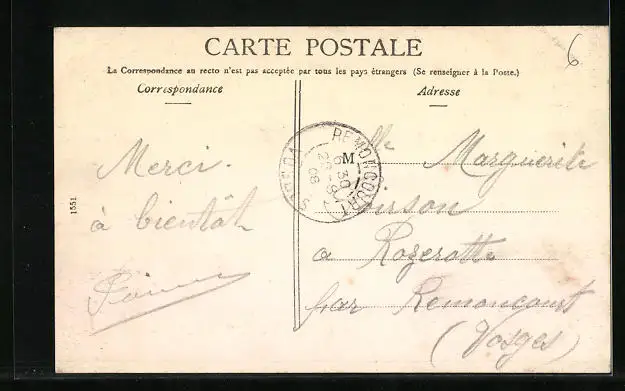 6
CARTE POSTALE
La Correspondance au recto n'est pas acceptée par tous les pays étrangers (Se renseigner à la Poste.)
Correspondance
Adresse
Merci.
à bientôt
1551
REMONCOURT
VOSGES
6 30
08
M lle Marguerite
à Rozerotte
par Remoncourt
(Vosges)